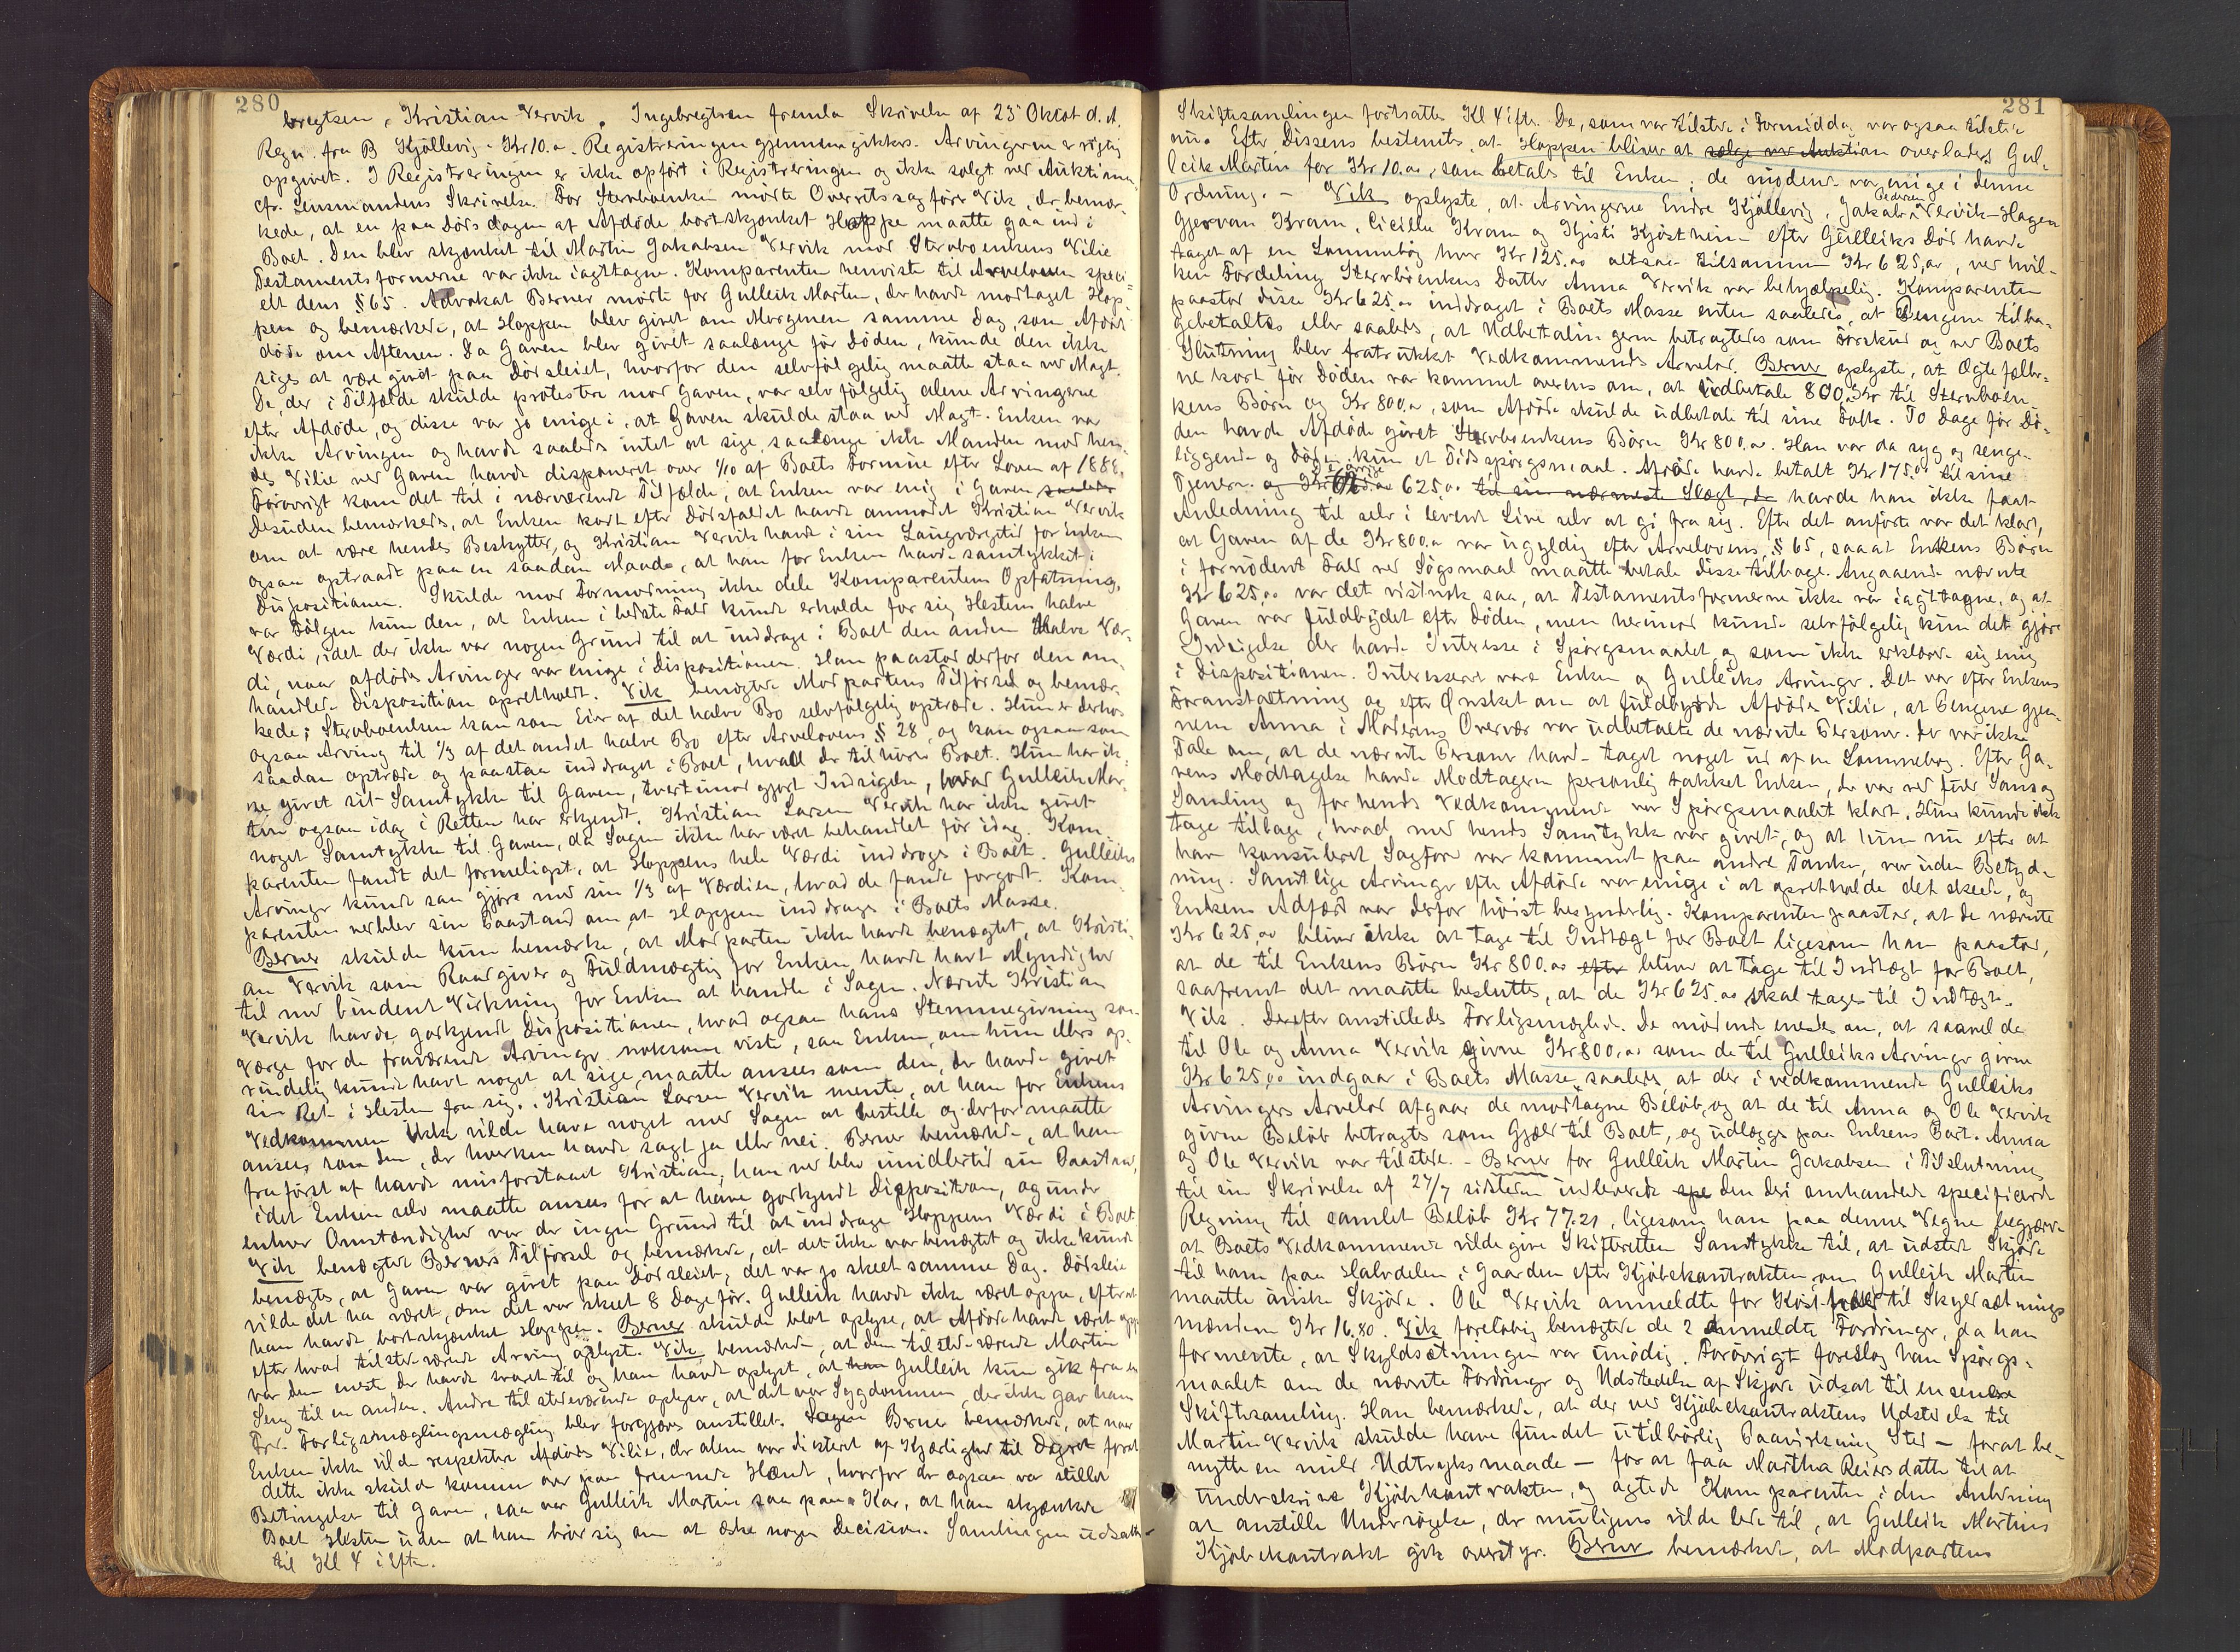 280
bregtsen, Kristian Vervik. Ingebregtsen fremla Skrivelse af 23 Oktob d.A.
Regn. fra B Kjöllevig - Kr 10.00. Registreringen gjennemgikkes. Arvingerne er rigtig
opgivet. I Registreringen er ikke opfört i Registreringen og ikke solgt ved Auktionen
cfr. Lensmandens Skrivelse. For Sterboenken mödte Overretssagförer Vik, der bemær-
kede, at en paa Dödsdagen af Afdöde bortskjænket Hoppe maatte gaa ind i
Boet. Den blev skjænket til Martin Jakobsen Vervik mod Sterboenkens Vilie
Testamentsformerne var ikke iagttagne. Komparenten henviste til Arveloven speci-
elt dens § 65. Advokat Berner mödte for Gulleik Martin, der havde modtaget Hop-
pen og bemærkede, at Hoppen blev givet om Morgenen samme Dag, som Afdöde
döde om Aftenen. Da Gaven blev givet saalænge för Döden, kunde den ikke
siges at være givet paa Dödsleiet, hvorfor den selvfölgelig maatte staa ved Magt.
De, der i Tilfælde skulde protestere mod Gaven, var selvfölgelig alene Arvingerne
efter Afdöde, og disse var jo enige i, at Gaven skulde staa ved Magt. Enken var
ikke Arvingen og havde saaledes intet at sige, saalænge ikke Manden mod hen-
des Vilie ved Gaven havde disponeret over 1/10 af Boets Formue efter Loven af 1888.
Forövrigt kom det til i nærværende Tilfælde, at Enken var enig i Gaven saaledes
Desuden bemærkedes, at Enken kort efter Dödsfaldet havde anmodet Kristian Vervik
om at være hendes Beskytter, og Kristian Vervik havde i sin Laugværgetid for Enken
ogsaa optraadt paa en saadan Maade, at han for Enken havde samtykket i
Dispositionen. Skulde mod Formodning ikke dele Komparentens Opfatning,
var Fölgen kun den, at Enken i bedste Fald kunde erholde for sig Hestens halve
Værdi, idet der ikke var nogen Grund til at inddrage i Boet den anden Halve Vær-
di, naar afdödes Arvinger var enige i Dispositionen. Han paastod derfor den om-
handlede Disposition opretholdt. Vik benægtede Modpartens Tilförsel og bemær-
kede: Sterboenken kan som Eier af det halve Bo selvfölgelig optræde. Hun er derhos
ogsaa Arving til 1/3 af det andet halve Bo efter Arvelovens § 28, og kan ogsaa som
saadan optræde og paastaa inddraget i Boet, hvad der tilhörer Boet. Hun har ik-
ke givet sit Samtykke til Gaven, tvertimod gjort Indsigelse, hvad Gulleik Mar-
tin ogsaa idag i Retten har erkjendt. Kristian Larsen Vervik har ikke givet
noget Samtykke til Gaven, da Sagen ikke har været behandlet för idag. Kom-
parenten fandt det formeligst, at Hoppens hele Værdi inddroges i Boet. Gulleiks
Arvinger kunde saa gjöre med sin 1/3 af Værdien, hvad de fandt forgodt. Kom-
parenten vedblev sin Paastand om at Hoppen inddrages i Boets Masse.
Berner skulde kun bemærke, at Modparten ikke havde benægtet, at Kristi-
an Vervik som Raadgiver og Fuldmægtig for Enken havde havt Myndighed
til med bindende Virkning for Enken at handle i Sagen. Nævnte Kristian
Vervik havde godkjendt Dispositionen, hvad ogsaa hans Stemmegivning som
Værge for de fraværende Arvinger noksom viste, saa Enken, om hun ellers op-
rindelig kunde havt noget at sige, maatte ansees som den, der havde givet
sin Ret i Hesten fra sig. Kristian Larsen Vervik mente, at han for Enkens
Vedkommen ikke vilde have noget med Sagen at bestille og derfor maatte
ansees som den, der hverken havde sagt ja eller nei. Berner bemærkede, at han
fra först af havde misforstaaet Kristian, han vedblev imidlertid sin Paastand,
idet Enken selv maatte ansees for at have godkjendt Dispositionen, og under
enhver Omstændighed var der ingen Grund til at inddrage Hoppens Værdi i Boet
Vik benægtede Berners Tilförsel og bemærkede, at det ikke var benægtet og ikke kunde
benægtes, at Gaven var givet paa Dödsleiet, det var jo skeet samme Dag. Dödsleie
vilde det ha været, om det var skeet 8 Dage för. Gulleik havde ikke været oppe, efterat
han havde bortskjænket Hoppen. Berner skulde blot oplyse, at Afdöde havde været oppe
efter hvad tilstedeværende Arving oplyst. Vik bemærkede, at den tilstedeværende Martin
var den eneste, der havde svaret til og han havde oplyst, at han Gulleik kun gik fra en
Seng til en anden. Andre tilstedeværende oplyser, at det var Sygdommen, der ikke gav ham
Fred. Forligsmæglingsmægling blev forgjæves anstillet. Sagen Berner bemærkede, at naar
Enken ikke vilde respektere Afdödes Vilie, der alene var dikteret af Kjærlighed til Dyret forat
dette ikke skulde komme over paa fremmede Hænder, hvorfor der ogsaa var stillet
Betingelser til Gaven, saa var Gulleik Martin saa paas Kar, at han skjænkede
Boet Hesten uden at han bröd sig om at æske nogen Decision. Samlingen udsatte
til Kl 4 i Eftm.
281
Skiftesamlingen fortsattes Kl 4 eftm. De, som var tilstede i Formiddag var ogsaa tilstede
nu. Efter Dissens bestemtes, at Hoppen bliver at sælge ved Auktion overlades Gul-
leik Martin for Kr 10.00, som betales til Enken; de mödende var enige i denne
Ordning. - Vik oplyste, at Arvingerne Endre Kjöllevig, Jakob Pedersen Vervik-Hagen
Gjervan Kram, Cicilie Kram og Kjisti Kjöstheim efter Gulleiks Död havde
taget af en Lommebog hver Kr 125.00 altsaa tilsammen Kr 625,00, ved hvil-
ken Fordeling Sterboenkens Datter Anna Vervik var behjælpelig. Komparenten
paastod disse Kr 625.00 inddraget i Boets Masse enten saaledes, at Pengene tilba-
gebetaltes eller saaledes, at Udbetalingerne betragtedes som Forskud og ved Boets
Slutning blev fratrukket Vedkommendes Arvelod. Berner oplyste, at Ægtefælle-
ne kort för Döden var kommet overens om, at udbetale 800,00 Kr til Sterboen-
kens Börn og Kr 800.00, som Afdöde skulde udbetale til sine Folk. To Dage för Dö-
den havde Afdöde givet Sterboenkens Börn Kr 800.00. Han var da syg og senge-
liggende og Döden kun et Tidsspörgsmaal. Afdöde havde betalt Kr 175.00 til sine
Tjenere. og Kr De övrige 625,00 til sin nærmeste Slægt, de havde han ikke faat
Anledning til selv i levende Live selv at gi fra sig. Efter det anförte var det klart,
at Gaven af de Kr 800.00 var ugyldig efter Arvelovens § 65, saaat Enkens Börn
i fornödent Fald ved Sögsmaal maatte betale disse tilbage. Angaaende nævnte
Kr 625,00 var det vistnok saa, at Testamentsformerne ikke var iagttagne, og at
Gaven var fuldbyrdet efter Döden, men herimod kunde selvfölgelig kun det gjöre
Indsigelse der havde Interesse i Spörgsmaalet og som ikke erklærede sig enig
i Dispositionen. Interesseret vare Enken og Gulleiks Arvinger. Det var efter Enkens
Foranstaltning og efter Ønsket om at fuldbyrde Afdödes Vilie, at Pengene gjen-
nem Anna i Moderens Overvær var udbetalte de nævnte Personer. Der var ikke
Tale om, at de nævnte Personer havde taget noget ud af en Lommebog. Efter Ga-
vens Modtagelse havde Modtageren personlig takket Enken, der var ved fuld Sans og
Samling og for hendes Vedkommende var Spörgsmaalet klart. Hun kunde ikke
tage tilbage, hvad med hendes Samtykke var givet, og at hun nu efter at
have konsuleret Sagförer var kommet paa andre Tanker, var uden Betyd-
ning. Samtlige Arvinger efter Afdöde var enige i at opretholde det skeede, og
Enkens Adfærd var derfor höist besynderlig. Komparenten paastod, at de nævnte
Kr 625,00 bliver ikke at tage til Indtægt for Boet ligesom han paastod,
at de til Enkens Börn Kr 800.00 efter bliver at tage til Indtægt for Boet,
saafremt det maatte besluttes, at de Kr 625.00 skal tages til Indtægt.
Vik. Derefter anstilledes Forligsmægling. De mödende enedes om, at saavel de
til Ole og Anna Vervik givne Kr 800,00 som de til Gulleiks Arvinger givne
Kr 625,00 indgaar i Boets Masse, saaledes at der i vedkommende Gulleiks
Arvingers Arvelod afgaar de modtagne Belöb, og at de til Anna og Ole Vervik
givne Belöb betragtes som Gjæld til Boet, og udlægges paa Enkens Part. Anna
og Ole Vervik var tilstede. - Berner for Gulleik Martin Jakobsen i Tilslutning
til sin Skrivelse af 27/7 sidstleden indleverede spe den deri omhandlede specificerede
Regning til samlet Belöb Kr 77.21, ligesom han paa dennes Vegne begjærede
at Boets Vedkommende vilde give Skifteretten Samtykke til, at udstede Skjöde
til ham paa Halvdelen i Gaarden efter Kjöbekontrakten om Gulleik Martin
maatte önske Skjöde. Ole Vervik anmeldte for Kost til Skyldsætnings-
mændene Kr 16.80. Vik foreløbig benægtede de 2 anmeldte Fordringer, da han
formente, at Skyldsætningen var unödig. Forövrigt foreslog han Spörgs-
maalet om de nævnte Fordringer og Udstedelse af Skjöde udsat til en senere
Skiftesamling. Han bemærkede, at der ved Kjöbekontraktens Udstedelse til
Martin Vervik skulde have fundet utilbörlig Paavirkning Sted - forat be-
nytte en mild Udtryksmaade - for at faa Martha Reiersdatter til at
underskrive Kjöbekontrakten, og agtede Komparenten i den Anledning
at anstille Undersögelse, der muligens vilde lede til, at Gulleik Martins
Kjöbekontrakt gik overstyr. Berner bemærkede, at Modpartens